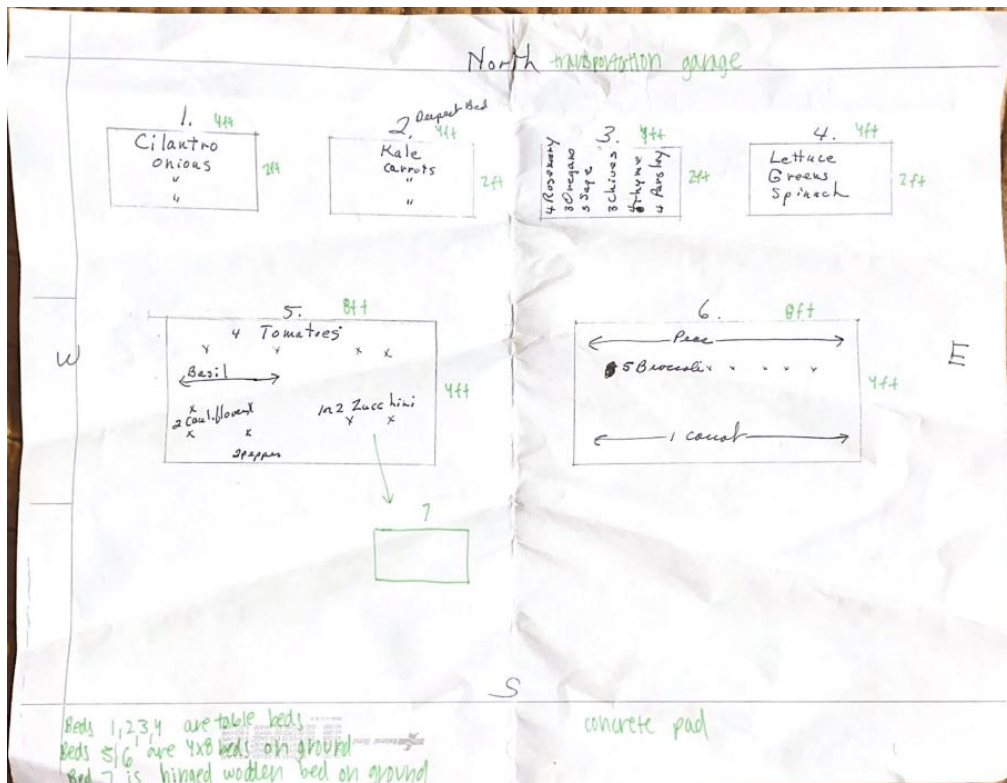 North transportation garage
1. 4ft
Cilantro
onions
"
"
2ft
2. Deepest Bed
4ft
Kale
carrots
"
"
2ft
3.
4ft
4 Rosemary
3 Oregano
3 Sage
3 Chives
Thyme
4 Parsley
2ft
4. 4ft
Lettuce
Greens
Spinach
2ft
W
5. 8ft
4 Tomatoes
x x x x
Basil
2 Cauliflower
x x
x x
1 or 2 Zucchini
x x
2 pepper
4ft
7
6. 8ft
Peas
5 Broccoli x x x x x
1 carrot
4ft
E
S
Beds 1,2,3,4 are table beds
Beds 5,6 are 4x8 beds on ground
Bed 7 is hinged wooden bed on ground
concrete pad